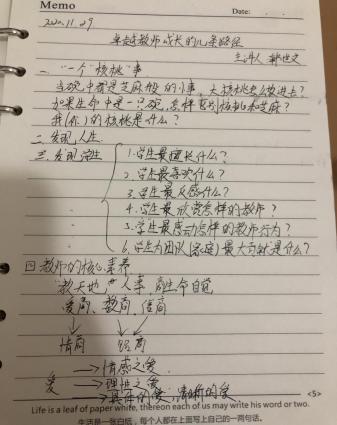 Memo
Date:
2020.11.29
卓越教师成长的几条路径
主讲人 郭世文
一、"一个"核桃"事
当碗中都是芝麻般的小事,大核桃怎么放进去?
如果生命中是一只碗,怎样区别核桃和芝麻?
我(你)的核桃是什么?
二、发现人生
三、发现学生
1.学生最擅长什么?
2.学生最喜欢什么?
3.学生最反感什么?
4.学生最欣赏怎样的教师?
5.学生最感动怎样的教师行为?
6.学生为团队(家庭)最大贡献是什么?
四 教师的核心素养
教天地人事,育生命自觉
爱商、数商、信商
情商
爱
情感之爱
理性之爱
具体的爱,清晰的爱
<5>
Life is a leaf of paper white, thereon each of us may write his word or two.
生活是一张白纸,每个人都在上面写上自己的一两句话。